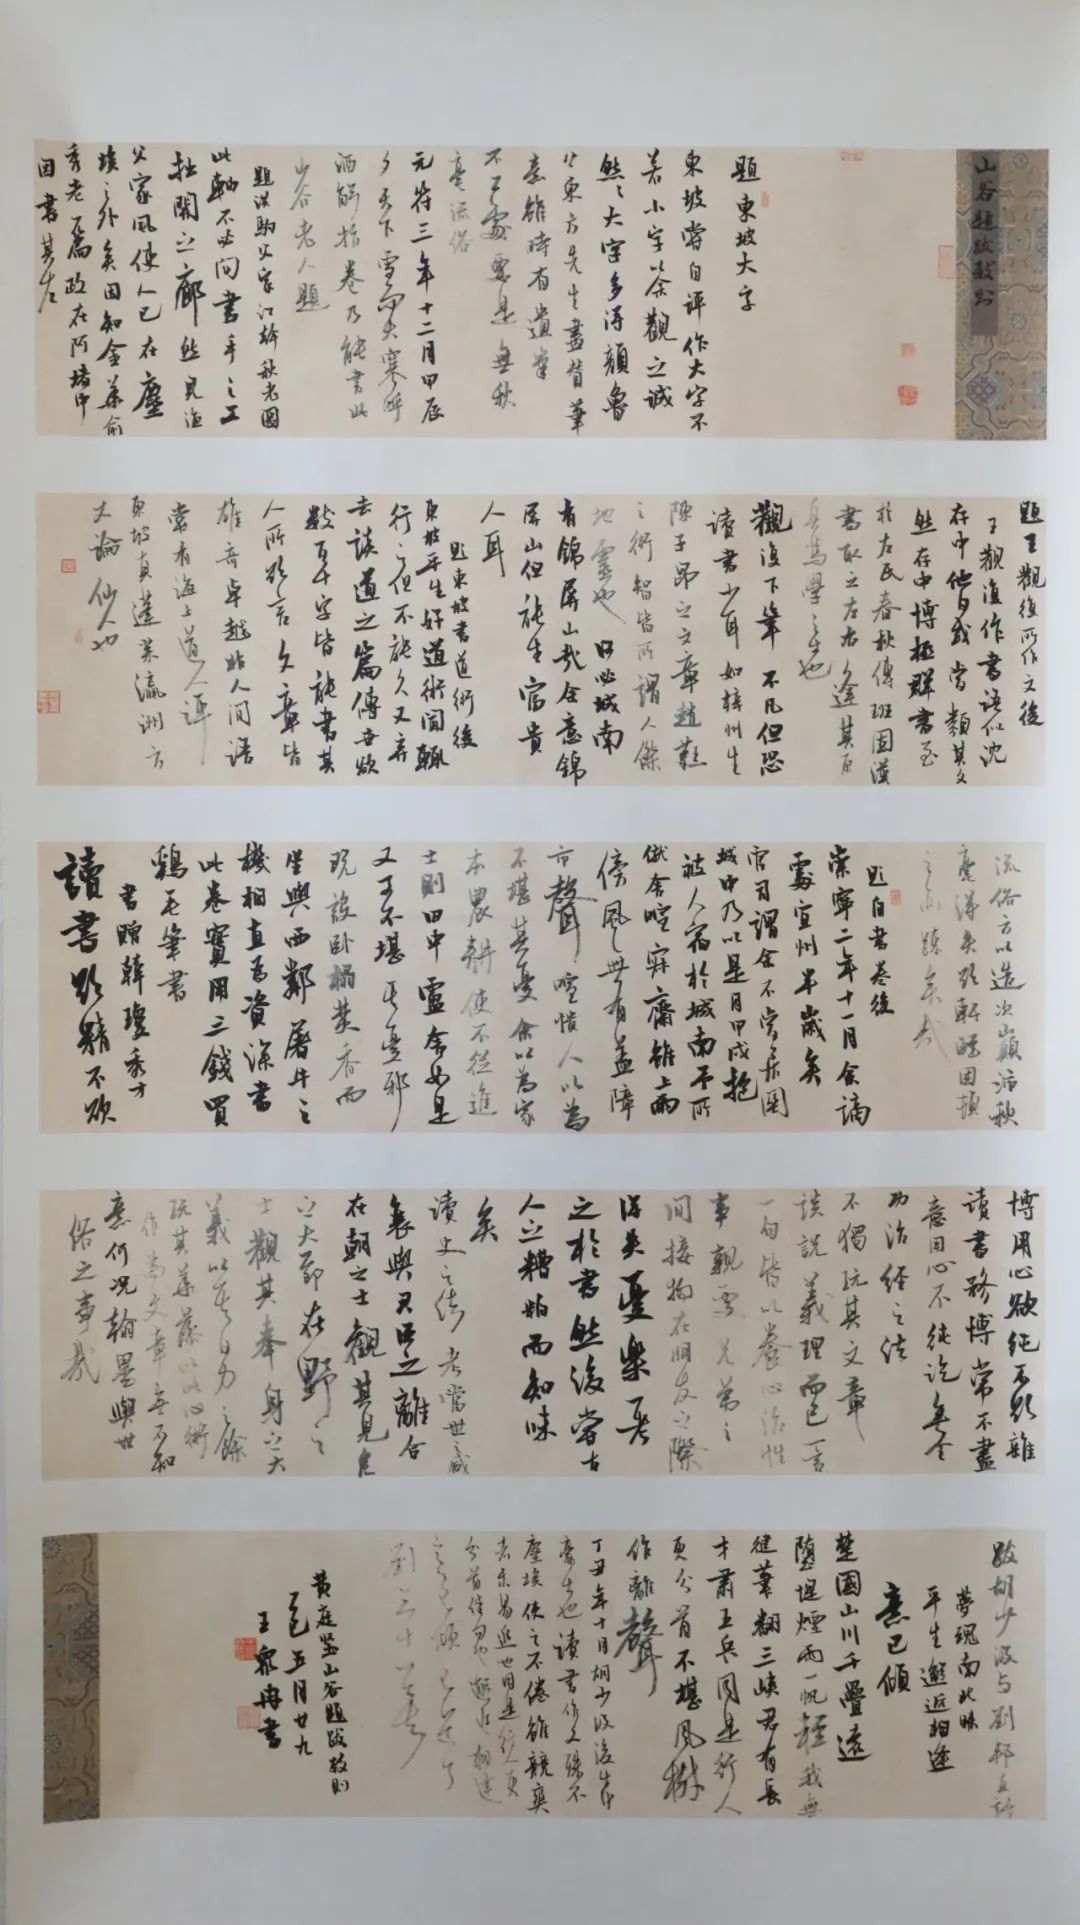 山谷題跋數則
題東坡大字
東坡嘗自評作大字不
若小字以余觀之誠
然然大字多得顏魯
公東方先生畫贊筆
意雖時有遣筆
不工處要是無秋
毫流俗
元符三年十二月甲辰
夕天下雪
大寒呼
酒解指卷乃能書此
山谷老人題
題洪駒父家江幹秋老圖
此軸不必問畫手之工
拙開之廊然見漁
父家風使人已在塵
埃之外矣固知金華俞
秀老一篇政在阿堵中
因書其左
題王觀復所作文後
王觀復作書語似沈
存中他日或當類其文
然存中博極群書至
於左氏春秋傳班固漢
書取之左右逢其原
真篤學之士也
觀復下筆不凡但恐
讀書少耳如梓州生
陳子昂之文章趙蕤
之術智皆所謂人傑
地靈也何必城南
有錦屏山哉余意錦
屏山但能生富貴
人耳
題東坡書道術後
東坡平生好道術聞輒
行之但不能久又棄
去談道之篇傳世欲
數百千字皆能書其
人所欲言文章皆
雄奇卓越非人間語
嘗有海上道人評
東坡真蓬萊瀛洲方
丈論仙人也
流俗方以造次顛沛秋
毫得失欲軒輊困頓
之亦疎矣哉
題自書卷後
崇寧三年十一月余謫
處宜州半歲矣
官司謂余不當居關
城中乃以是月甲戌抱
被入宿於城南予所
僦舍喧寂齋雖上雨
傍風無有蓋障
市聲喧憒人以為
不堪其憂余以為家
本農耕使不從進
士則田中廬舍如是
又可不堪其憂邪
既設臥榻焚香而
坐與西鄰屠牛之
機相直為資深書
此卷實用三錢買
雞毛筆書
書贈韓瓊秀才
讀書欲精不欲
博用心欲純不欲雜
讀書務博常不盡
意用心不純訖無全
功治經之法
不獨玩其文章
談說義理而已一言
一句皆以養心治性
事親處兄弟之
間接物在朋友之際
得失憂樂一
之於書然後嘗古
人之糟粕而知味
矣
讀史之法考當世之盛
衰與君臣之離合
在朝之士觀其見危
之大節在野之
士觀其奉身之大
義以其日力之餘
玩其華藻以此心術
作為文章無不如
意何況翰墨與世
俗之事哉
跋胡少汲與劉邦直詩
夢魂南北昧
平生邂逅相逢
意已傾
楚國山川千疊遠
隋堤煙雨一帆輕我無
健筆翻三峽君有長
才肅五兵同是行人
更分首不堪風樹
作離聲
丁丑年十月胡少汲後生中
豪士也讀書作文殊不
塵埃使之不倦雖競爽
者未易追也同是行人更
分首佳句邂逅相逢
意已傾
劉
黃庭堅山谷題跋數則
五月廿九
王
冉書